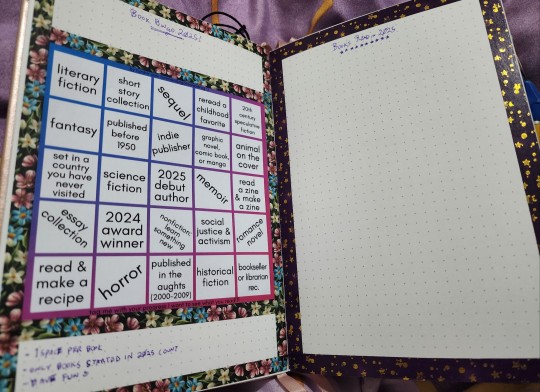 BOOK BINGO 2025!
BOOKS READ IN 2025
literary
fiction
short
story
collection
sequel
reread a
childhood
favorite
20th
century
speculative
fiction
fantasy
published
before
1950
indie
publisher
graphic
novel,
comic book,
or manga
animal
on the
cover
set in a
country you
have never
visited
science
fiction
2025
debut
author
memoir
read
a zine &
make a
zine
essay
collection
2024
award
winner
nonfiction:
learn
something
new
social
justice &
activism
romance
novel
read &
make a
recipe
horror
published
in the
aughts
(2000-2009)
historical
fiction
bookseller
or librarian
rec.
- 1 SPACE PER BOOK
- ONLY BOOKS STARTED IN 2025 COUNT
- HAVE FUN